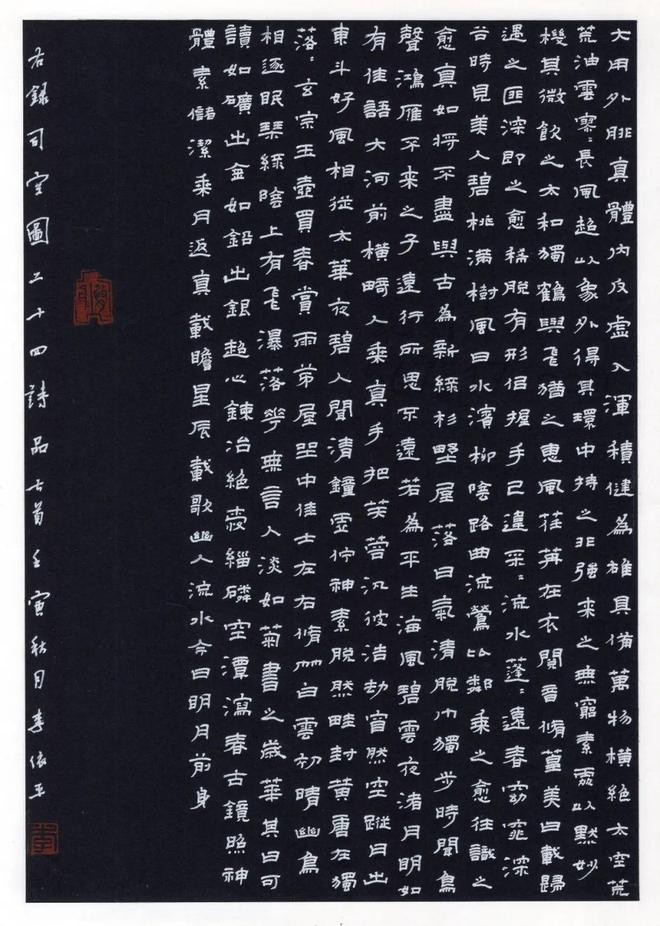 大用外腓真體內反虛入渾積健為雄具備萬物橫絕太空荒
荒油雲寥〻長風超以象外得其環中持之非強來之無窮素處以默妙
機其微飲之太和獨鶴與飛猶之惠風荏苒在衣閱音脩篁美曰載歸
遇之匪深即之愈稀脫有形佀握手已違采〻流水蓬〻遠春窈窕深
谷時見美人碧桃滿樹風日水濱柳陰路曲流鶯比鄰乘之愈往識之
愈真如將不盡與古為新綠杉野屋落日氣清脫巾獨步時聞鳥
聲鴻雁不來之子遠行所思不遠若為平生海風碧雲夜渚月明如
有佳語大河前橫疇人乘真手把芙蓉汎彼浩劫窅然空蹤月出
東斗好風相從太華夜碧人聞清鐘虛佇神素脫然畦封黃唐在獨
落〻玄宗玉壺買春賞雨茅屋坐中佳士左右脩竹白雲初晴幽鳥
相逐眠琴綠陰上有飛瀑落花無言人淡如菊書之歲華其曰可
讀如礦出金如鉛出銀超心鍊冶絕愛緇磷空潭瀉春古鏡照神
體素儲潔乘月返真載瞻星辰載歌幽人流水今日明月前身
右錄司空圖二十四詩品七首壬寅秋月李依
李